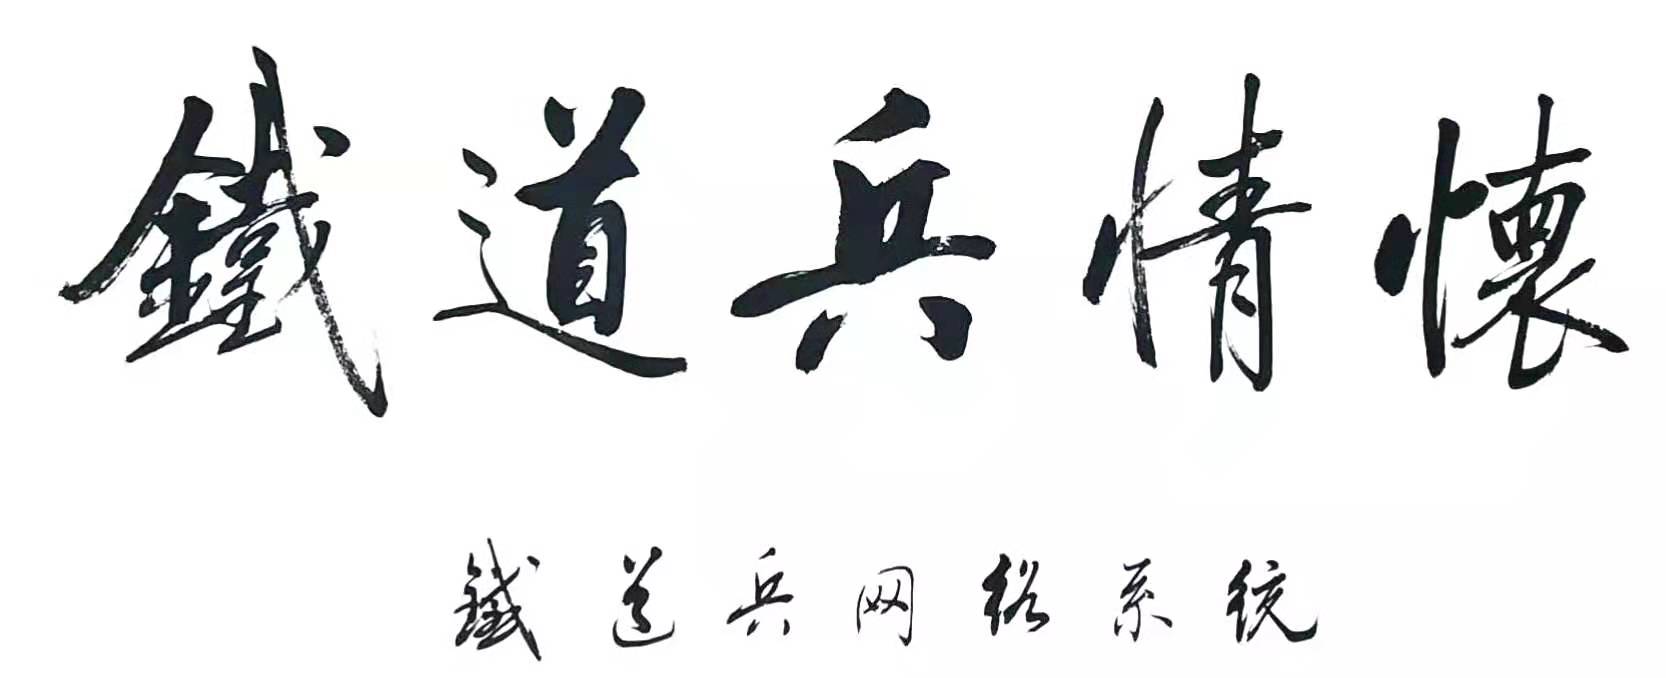 鐵道兵情懷
鐵道兵网络系统